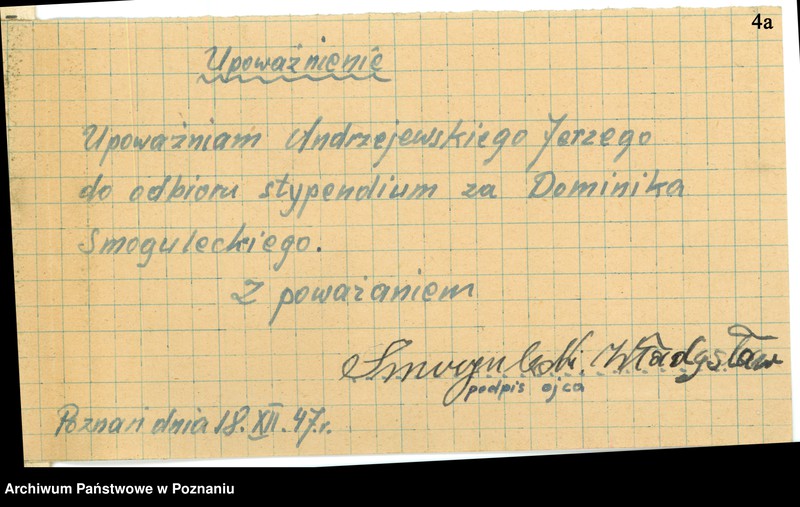 4a
Upoważnienie
Upoważniam Andrzejewskiego Jerzego
do odbioru stypendium za Dominika
Smoguleckiego.
Z poważaniem
Smogulecki Władysław
podpis ojca
Poznań dnia 18.XII.47r.
Archiwum Państwowe w Poznaniu